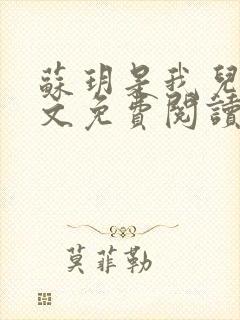 蘇玥是我兒
文免費閱讀
莫菲勒